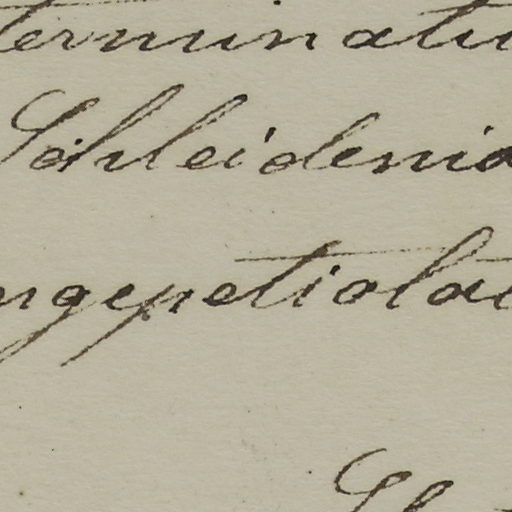 terminatu
Schleidenia
ngepetiolat